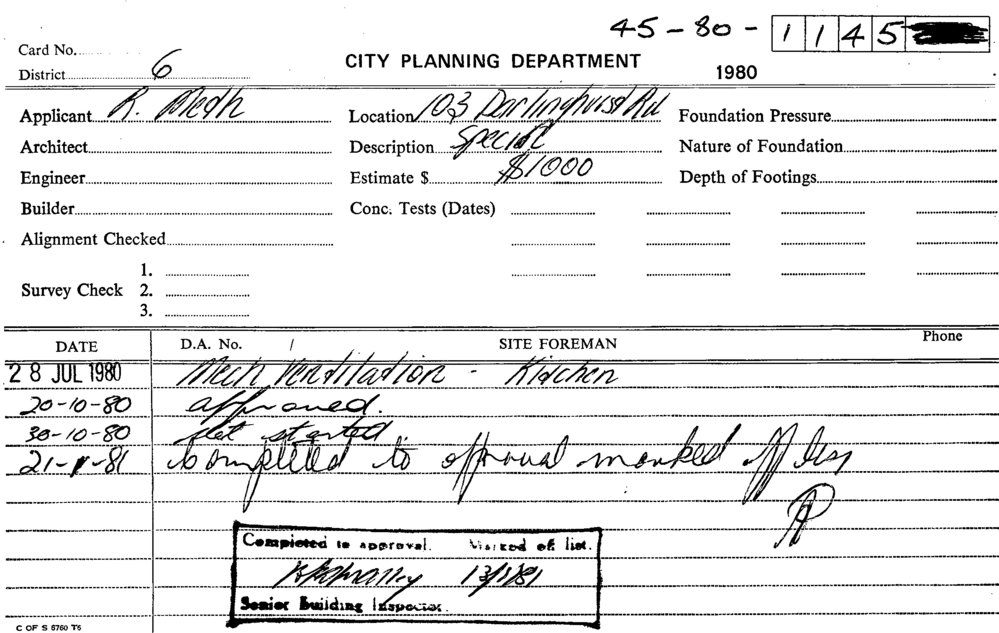 45-80-1145
Card No.
District 6
CITY PLANNING DEPARTMENT
1980
Applicant R. Meth Location 103 Darlinghurst Rd Foundation Pressure
Architect Description Special Nature of Foundation
Engineer Estimate $ $1000 Depth of Footings
Builder Conc. Tests (Dates)
Alignment Checked
1.
Survey Check 2.
3.
DATE D.A. No. / SITE FOREMAN Phone
28 JUL 1980 Mech Ventilation - Kitchen
20-10-80 approved.
30-10-80 not started.
21-1-81 Completed to approval marked off
Completed to approval. Marked of list.
13/1/81
Senior Building Inspector.
C OF S 6760 T6